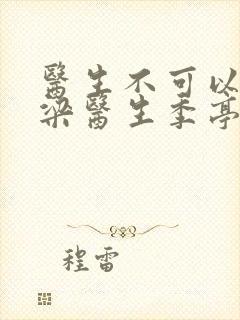 醫生不可以
梁醫生季亭
程雷